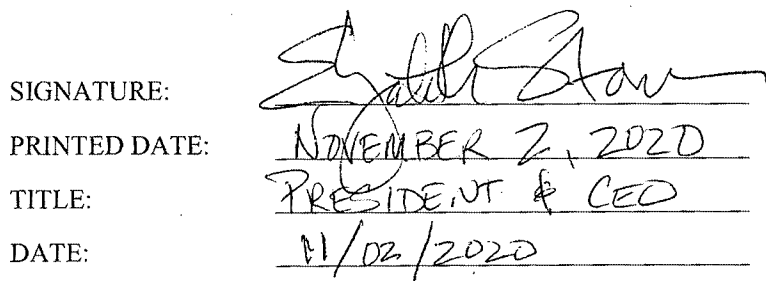 SIGNATURE:
PRINTED DATE: NOVEMBER 2, 2020
TITLE: PRESIDENT & CEO
DATE: 11/02/2020